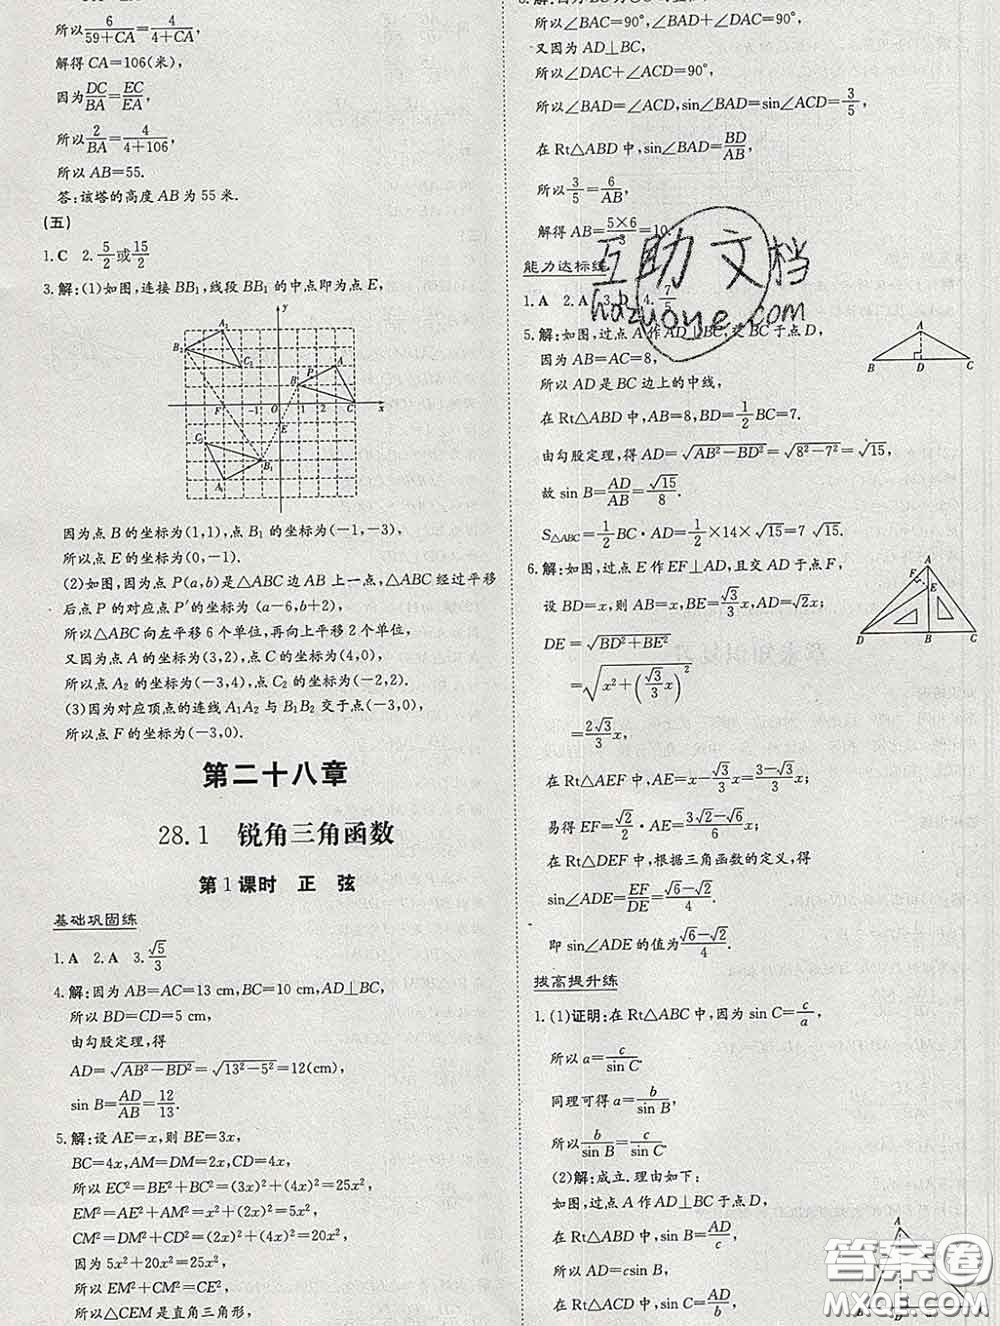 所以6/(59+CA)=4/(4+CA),
解得CA=106(米),
因为DC/BA=EC/EA,
所以2/BA=4/(4+106),
所以AB=55.
答:该塔的高度AB为55米.
(五)
1.C 2.5/2或15/2
3.解:(1)如图,连接BB₁,线段BB₁的中点即为点E,
因为点B的坐标为(1,1),点B₁的坐标为(-1,-3),
所以点E的坐标为(0,-1).
(2)如图,因为点P(a,b)是△ABC边AB上一点,△ABC经过平移
后点P的对应点P'的坐标为(a-6,b+2),
所以△ABC向左平移6个单位,再向上平移2个单位,
又因为点A的坐标为(3,2),点C的坐标为(4,0),
所以点A₂的坐标为(-3,4),点C₂的坐标为(-2,2).
(3)因为对应顶点的连线A₁A₂与B₁B₂交于点(-3,0),
所以点F的坐标为(-3,0).
第二十八章
28.1 锐角三角函数
第1课时 正弦
基础巩固练
1.A 2.A 3.√5/3
4.解:因为AB=AC=13 cm,BC=10 cm,AD⊥BC,
所以BD=CD=5 cm,
由勾股定理,得
AD=√(AB²-BD²)=√(13²-5²)=12(cm),
sin B=AD/AB=12/13.
5.解:设AE=x,则BE=3x,
BC=4x,AM=DM=2x,CD=4x,
所以EC²=BE²+BC²=(3x)²+(4x)²=25x²,
EM²=AE²+AM²=x²+(2x)²=5x²,
CM²=DM²+CD²=(2x)²+(4x)²=20x²,
因为5x²+20x²=25x²,
所以EM²+CM²=CE²,
所以△CEM是直角三角形,
所以∠BAC=90°,∠BAD+∠DAC=90°,
又因为AD⊥BC,
所以∠DAC+∠ACD=90°,
所以∠BAD=∠ACD,sin∠BAD=sin∠ACD=3/5,
在Rt△ABD中,sin∠BAD=BD/AB,
所以3/5=6/AB,
解得AB=(5×6)/3=10.
能力达标练
1.A 2.A 3.D 4.7/5
5.解:如图,过点A作AD⊥BC,交BC于点D,
因为AB=AC=8,
所以AD是BC边上的中线,
在Rt△ABD中,AB=8,BD=1/2BC=7.
由勾股定理,得AD=√(AB²-BD²)=√(8²-7²)=√15,
故sin B=AD/AB=√15/8.
S△ABC=1/2BC·AD=1/2×14×√15=7√15.
6.解:如图,过点E作EF⊥AD,且交AD于点F,
设BD=x,则AB=x,BE=√3/3x,AD=√2x;
DE=√(BD²+BE²)
=√(x²+(√3/3x)²)
=2√3/3x,
在Rt△AEF中,AE=x-√3/3x=(3-√3)/3x,
易得EF=√2/2·AE=(3√2-√6)/6x,
在Rt△DEF中,根据三角函数的定义,得
sin∠ADE=EF/DE=(√6-√2)/4.
即sin∠ADE的值为(√6-√2)/4.
拔高提升练
1.(1)证明:在Rt△ABC中,因为sin C=c/a,
所以a=c/sin C.
同理可得a=b/sin B,
所以b/sin B=c/sin C.
(2)解:成立.理由如下:
如图,过点A作AD⊥BC于点D,
在Rt△ABD中,sin B=AD/c,
所以AD=csin B,
在Rt△ACD中,sin C=AD/b,
互助文档
hazuoye.com
答案圈
MXQE.COM